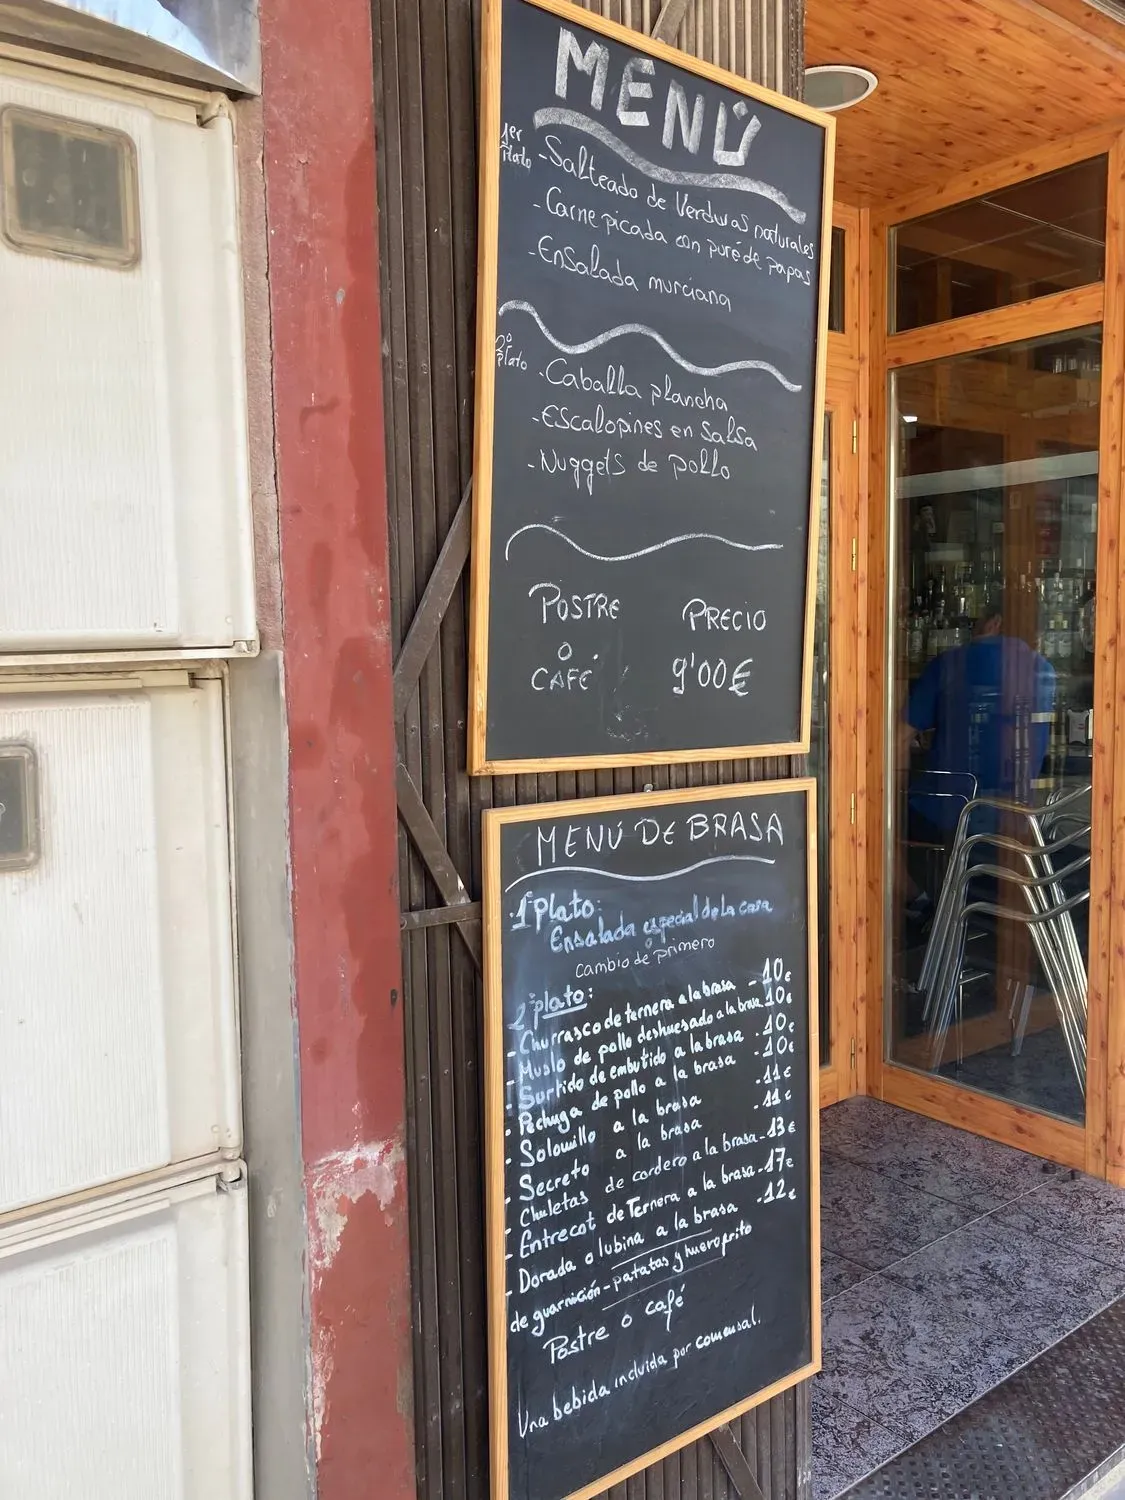 MENÚ
1er Plato
-Salteado de Verduras naturales
-Carne picada con puré de papas
-Ensalada murciana
2º plato
-Caballa plancha
-Escalopines en Salsa
-Nuggets de pollo
POSTRE
O
CAFÉ
PRECIO
9'00€
MENÚ DE BRASA
1º plato:
Ensalada especial de la casa
o
cambio de primero
2º plato:
-Churrasco de ternera a la brasa - 10€
-Muslo de pollo deshuesado a la brasa 10€
-Surtido de embutido a la brasa -10€
-Pechuga de pollo a la brasa -10€
-Solomillo a la brasa -11€
-Secreto a la brasa -11€
-Chuletas de cordero a la brasa -13€
-Entrecot de Ternera a la brasa -17€
-Dorada o lubina a la brasa -12€
de guarnición - patatas y huevo frito
Postre o café
Una bebida incluida por comensal.